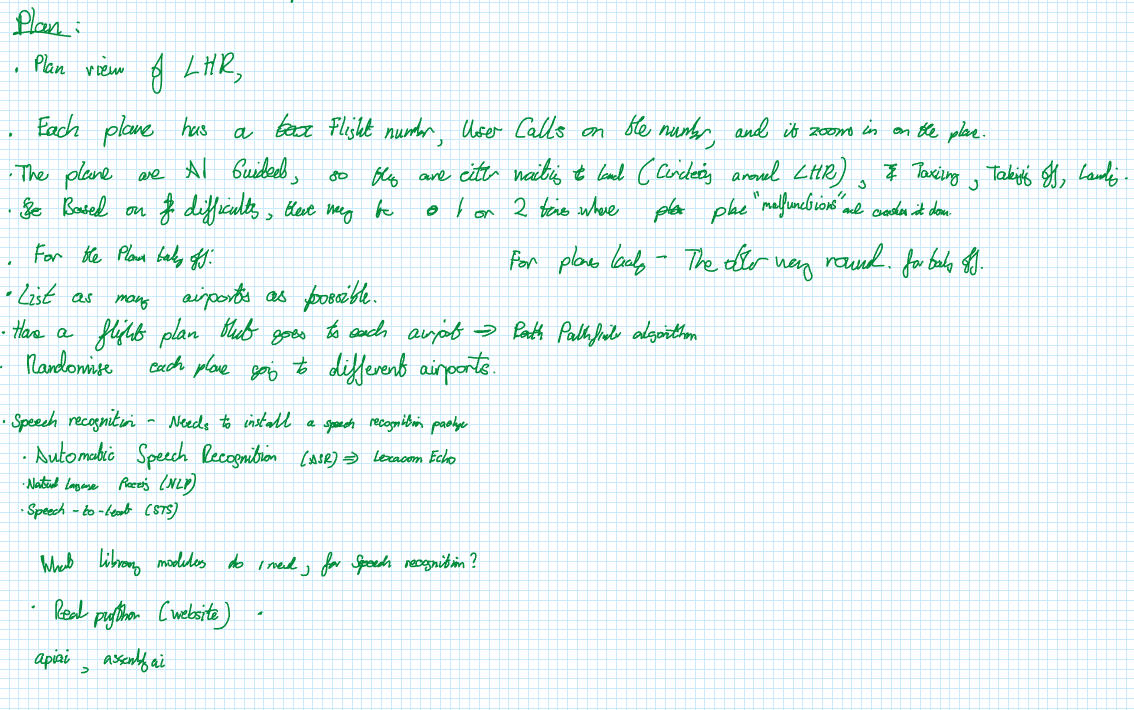 Plan:
• Plan view of LHR,
• Each plane has a Flight number, User Calls on the number, and it zooms in on the plane.
• The plane are AI Guided, so they are either waiting to land (Circling around LHR), Taxiing, Taking off, Landing.
• Based on difficulty, there may be 1 or 2 times where plane "malfunctions" and crashes it down.
• For the Plane taking off: For planes landing - The other way round. for taking off.
• List as many airports as possible.
• Have a flight plan that goes to each airport ⇒ Pathfinding algorithm
• Randomise each plane going to different airports.
• Speech recognition - Needs to install a speech recognition package
• Automatic Speech Recognition (ASR) ⇒ Lexacom Echo
• Natural Language Process (NLP)
• Speech-to-text (STS)
What library modules do I need, for speech recognition?
• Real python (website) •
apiai, assembly ai